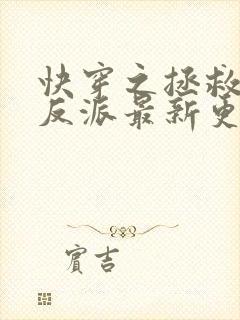 快穿之拯救
反派最新更
賓吉